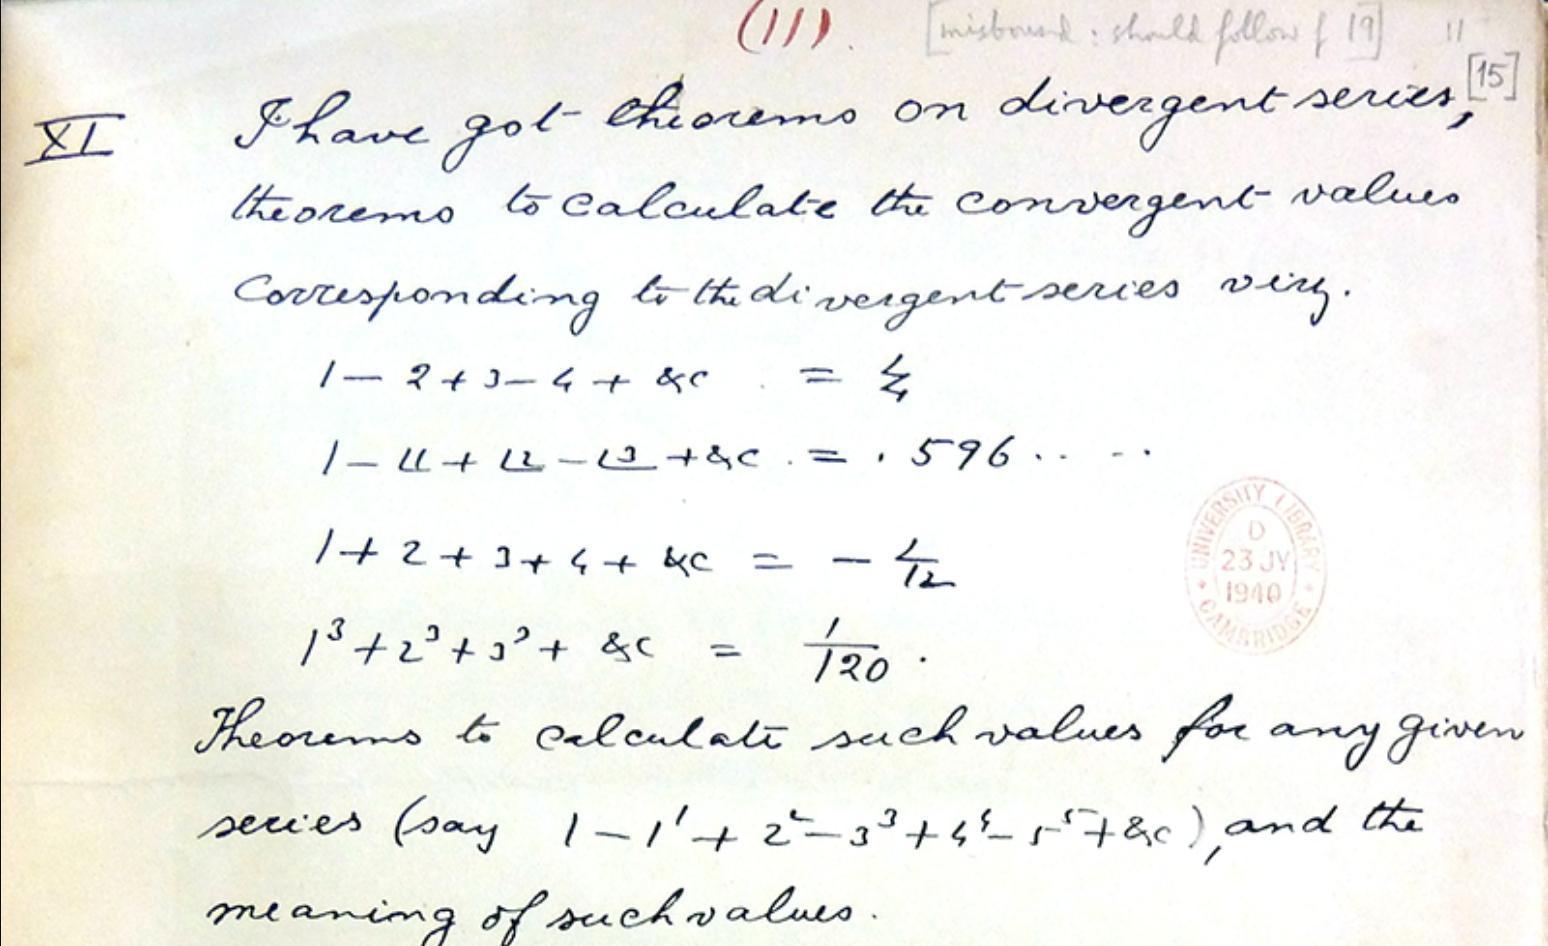 (11).
[misbound: should follow f 19] 11
[15]
XI I have got theorems on divergent series,
theorems to calculate the convergent values
Corresponding to the divergent series viz.
1 - 2 + 3 - 4 + &c = 1/4
1 - |1 + |2 - |3 + &c = .596.. ...
1 + 2 + 3 + 4 + &c = - 1/12
1³ + 2³ + 3³ + &c = 1/120.
Theorems to calculate such values for any given
series (say 1 - 1¹ + 2² - 3³ + 4⁴ - 5⁵ + &c), and the
meaning of such values.
UNIVERSITY LIBRARY
D
23 JY
1940
CAMBRIDGE